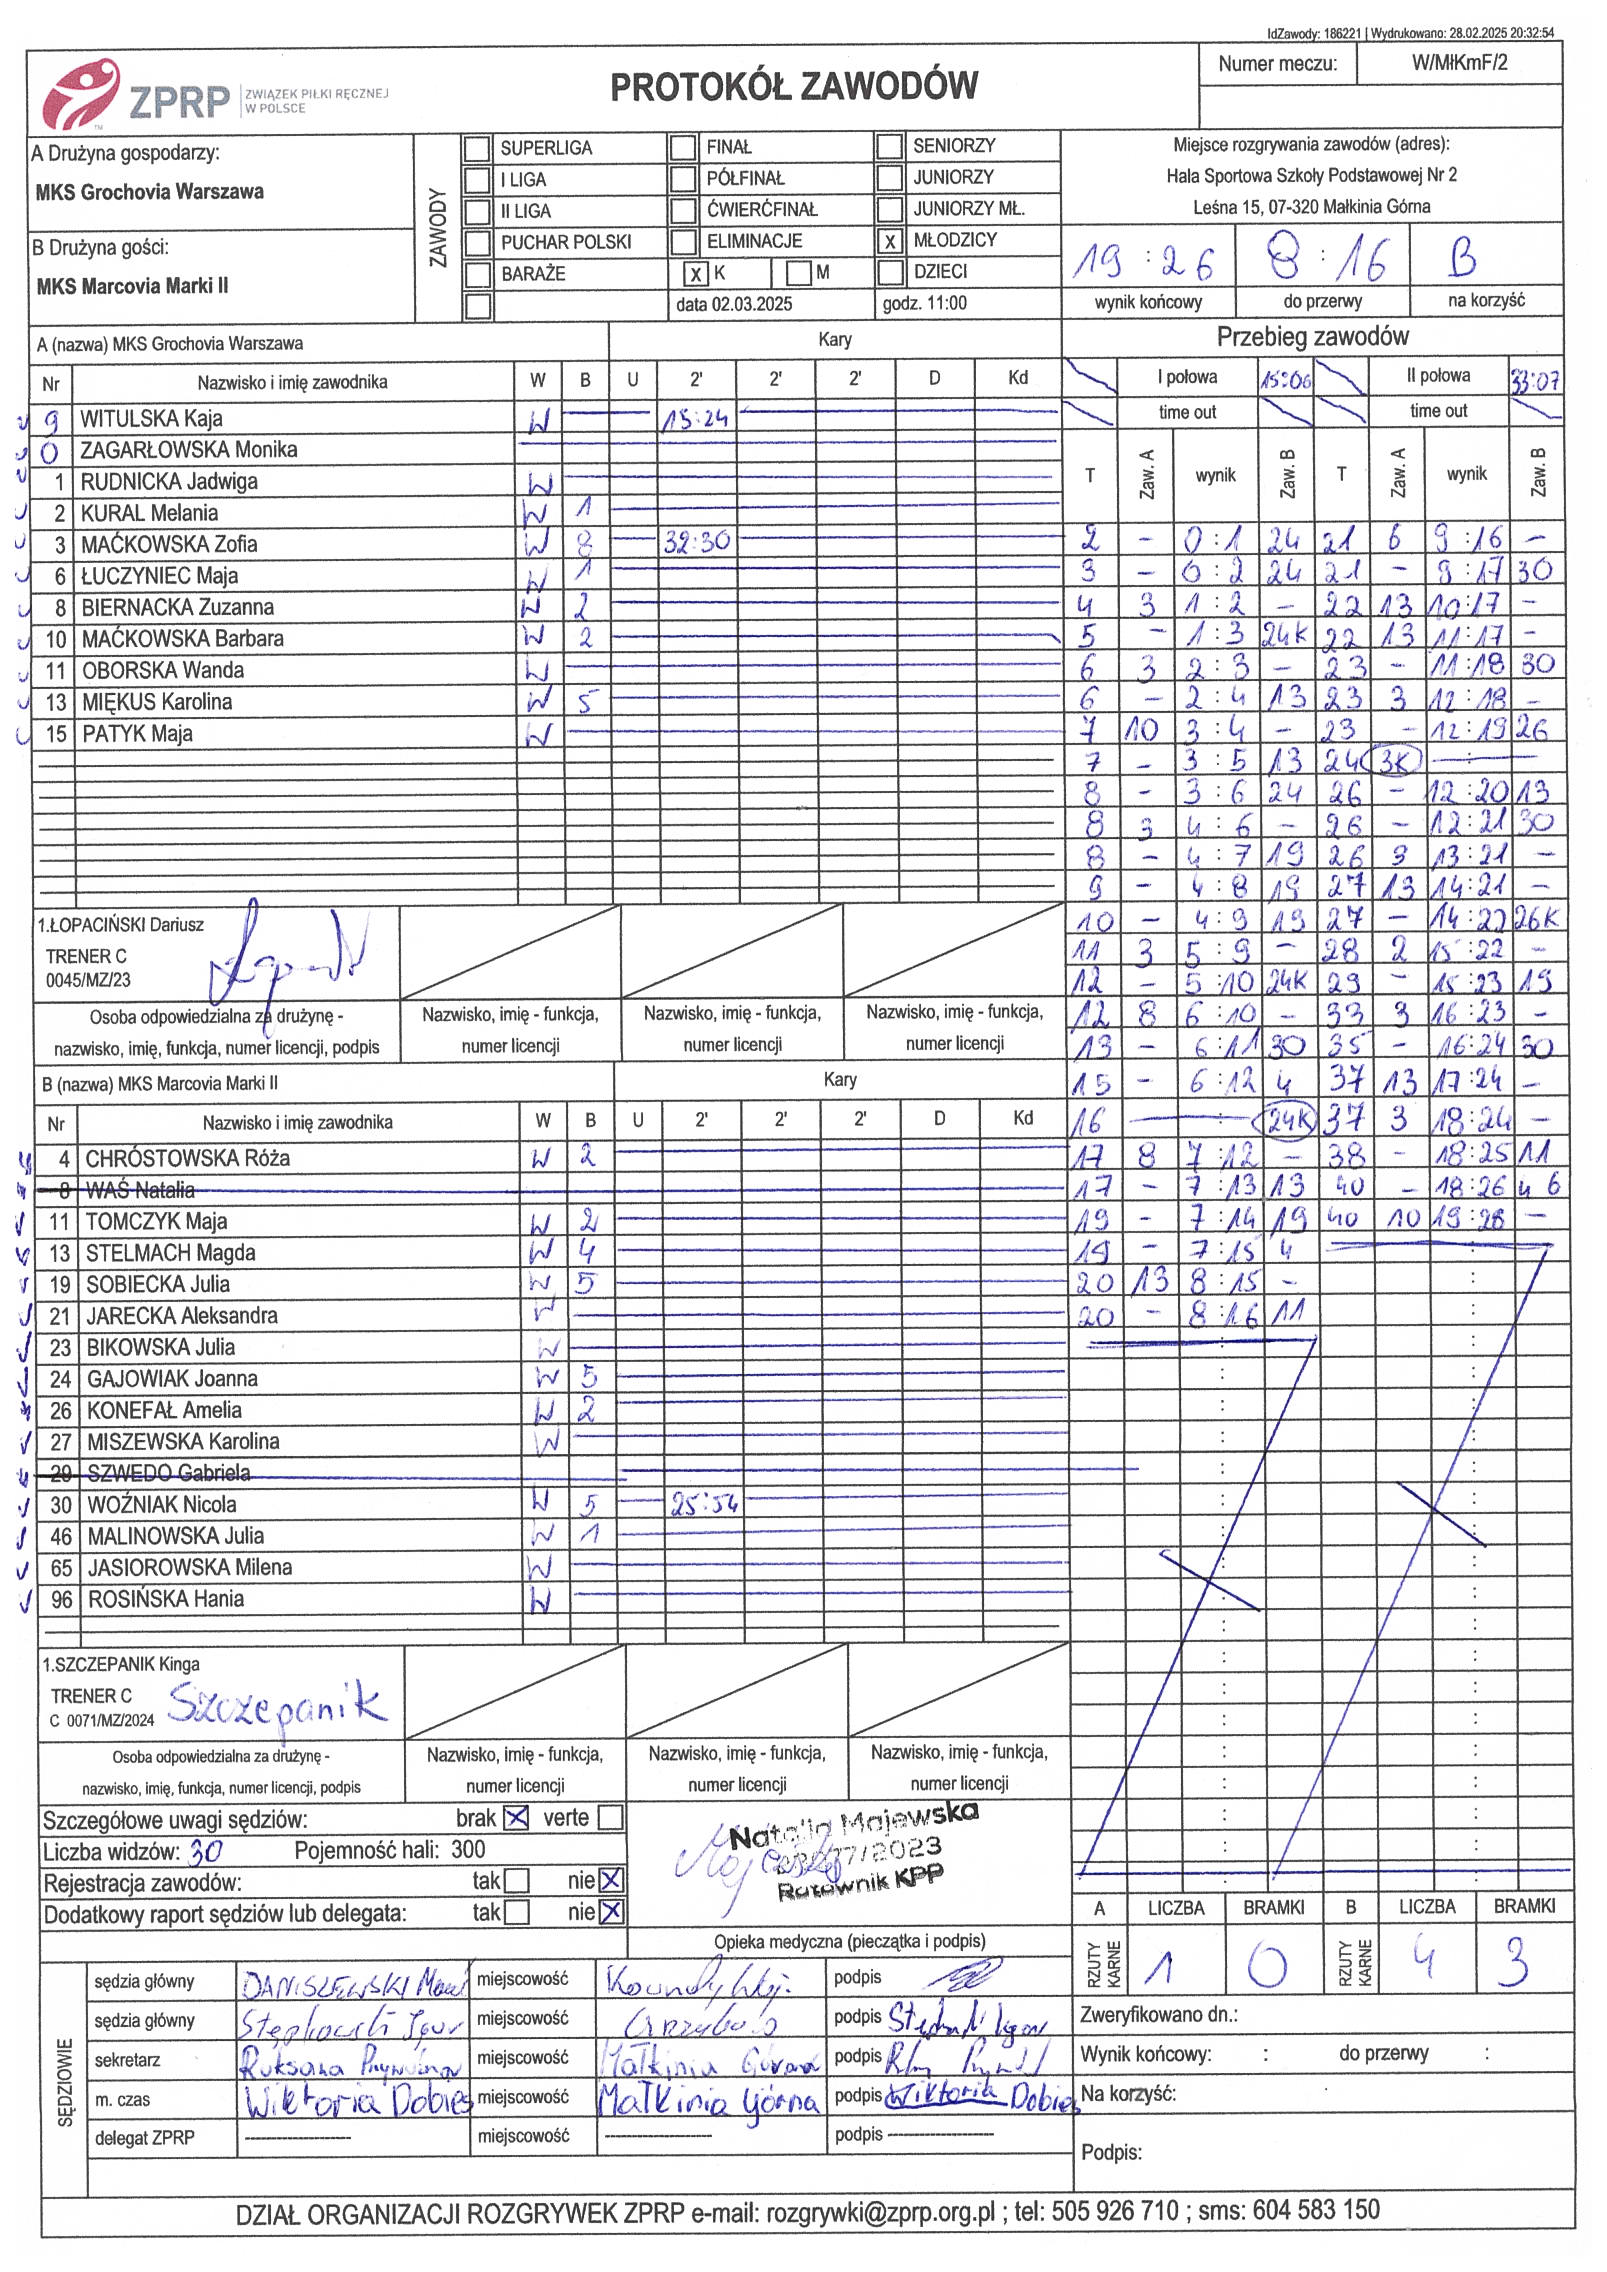 IdZawody: 186221 | Wydrukowano: 28.02.2025 20:32:54
ZPRP ZWIĄZEK PIŁKI RĘCZNEJ W POLSCE
PROTOKÓŁ ZAWODÓW
Numer meczu: W/MłKmF/2
A Drużyna gospodarzy:
MKS Grochovia Warszawa
B Drużyna gości:
MKS Marcovia Marki II
ZAWODY
SUPERLIGA FINAŁ SENIORZY
I LIGA PÓŁFINAŁ JUNIORZY
II LIGA ĆWIERĆFINAŁ JUNIORZY MŁ.
PUCHAR POLSKI ELIMINACJE X MŁODZICY
BARAŻE X K M DZIECI
data 02.03.2025 godz. 11:00
Miejsce rozgrywania zawodów (adres):
Hala Sportowa Szkoły Podstawowej Nr 2
Leśna 15, 07-320 Małkinia Górna
19 : 26 8 : 16 B
wynik końcowy do przerwy na korzyść
A (nazwa) MKS Grochovia Warszawa Kary
Nr Nazwisko i imię zawodnika W B U 2' 2' 2' D Kd
9 WITULSKA Kaja W 15:24
0 ZAGARŁOWSKA Monika
1 RUDNICKA Jadwiga W
2 KURAL Melania W 1
3 MAĆKOWSKA Zofia W 8 32:30
6 ŁUCZYNIEC Maja W 1
8 BIERNACKA Zuzanna W 2
10 MAĆKOWSKA Barbara W 2
11 OBORSKA Wanda W
13 MIĘKUS Karolina W 5
15 PATYK Maja W
1.ŁOPACIŃSKI Dariusz
TRENER C
0045/MZ/23
Osoba odpowiedzialna za drużynę - nazwisko, imię, funkcja, numer licencji, podpis
Nazwisko, imię - funkcja, numer licencji
Nazwisko, imię - funkcja, numer licencji
Nazwisko, imię - funkcja, numer licencji
B (nazwa) MKS Marcovia Marki II Kary
Nr Nazwisko i imię zawodnika W B U 2' 2' 2' D Kd
4 CHRÓSTOWSKA Róża W 2
8 WAŚ Natalia
11 TOMCZYK Maja W 2
13 STELMACH Magda W 4
19 SOBIECKA Julia W 5
21 JARECKA Aleksandra W
23 BIKOWSKA Julia W
24 GAJOWIAK Joanna W 5
26 KONEFAŁ Amelia W 2
27 MISZEWSKA Karolina W
29 SZWEDO Gabriela
30 WOŹNIAK Nicola W 5 25:54
46 MALINOWSKA Julia W 1
65 JASIOROWSKA Milena W
96 ROSIŃSKA Hania W
1.SZCZEPANIK Kinga
TRENER C
C 0071/MZ/2024
Szczepanik
Osoba odpowiedzialna za drużynę - nazwisko, imię, funkcja, numer licencji, podpis
Nazwisko, imię - funkcja, numer licencji
Nazwisko, imię - funkcja, numer licencji
Nazwisko, imię - funkcja, numer licencji
Przebieg zawodów
I połowa 15:06 II połowa 33:07
time out time out
T Zaw. A wynik Zaw. B T Zaw. A wynik Zaw. B
2 - 0:1 24 21 6 9:16 -
3 - 0:2 24 21 - 9:17 30
4 3 1:2 - 22 13 10:17 -
5 - 1:3 24K 22 13 11:17 -
6 3 2:3 - 23 - 11:18 30
6 - 2:4 13 23 3 12:18 -
7 10 3:4 - 23 - 12:19 26
7 - 3:5 13 24 3K
8 - 3:6 24 26 - 12:20 13
8 3 4:6 - 26 - 12:21 30
8 - 4:7 19 26 3 13:21 -
9 - 4:8 19 27 13 14:21 -
10 - 4:9 19 27 - 14:22 26K
11 3 5:9 - 28 2 15:22 -
12 - 5:10 24K 29 - 15:23 19
12 8 6:10 - 33 3 16:23 -
13 - 6:11 30 35 - 16:24 30
15 - 6:12 4 37 13 17:24 -
16 24K 37 3 18:24 -
17 8 7:12 - 38 - 18:25 11
17 - 7:13 13 40 - 18:26 46
19 - 7:14 19 40 10 19:26 -
19 - 7:15 4
20 13 8:15 -
20 - 8:16 11
Szczegółowe uwagi sędziów: brak X verte
Liczba widzów: 30 Pojemność hali: 300
Rejestracja zawodów: tak nie X
Dodatkowy raport sędziów lub delegata: tak nie X
Natalia Majewska
Ratownik KPP
Opieka medyczna (pieczątka i podpis)
A LICZBA BRAMKI B LICZBA BRAMKI
RZUTY KARNE 1 0 RZUTY KARNE 4 3
SĘDZIOWIE
sędzia główny DANISZEWSKI miejscowość podpis
sędzia główny Stępkowski Igor miejscowość podpis
sekretarz Roksana miejscowość Małkinia Górna podpis
m. czas Wiktoria Dobies miejscowość Małkinia Górna podpis Wiktoria Dobies
delegat ZPRP ---------- miejscowość ---------- podpis ----------
Zweryfikowano dn.:
Wynik końcowy: : do przerwy :
Na korzyść:
Podpis:
DZIAŁ ORGANIZACJI ROZGRYWEK ZPRP e-mail: rozgrywki@zprp.org.pl ; tel: 505 926 710 ; sms: 604 583 150